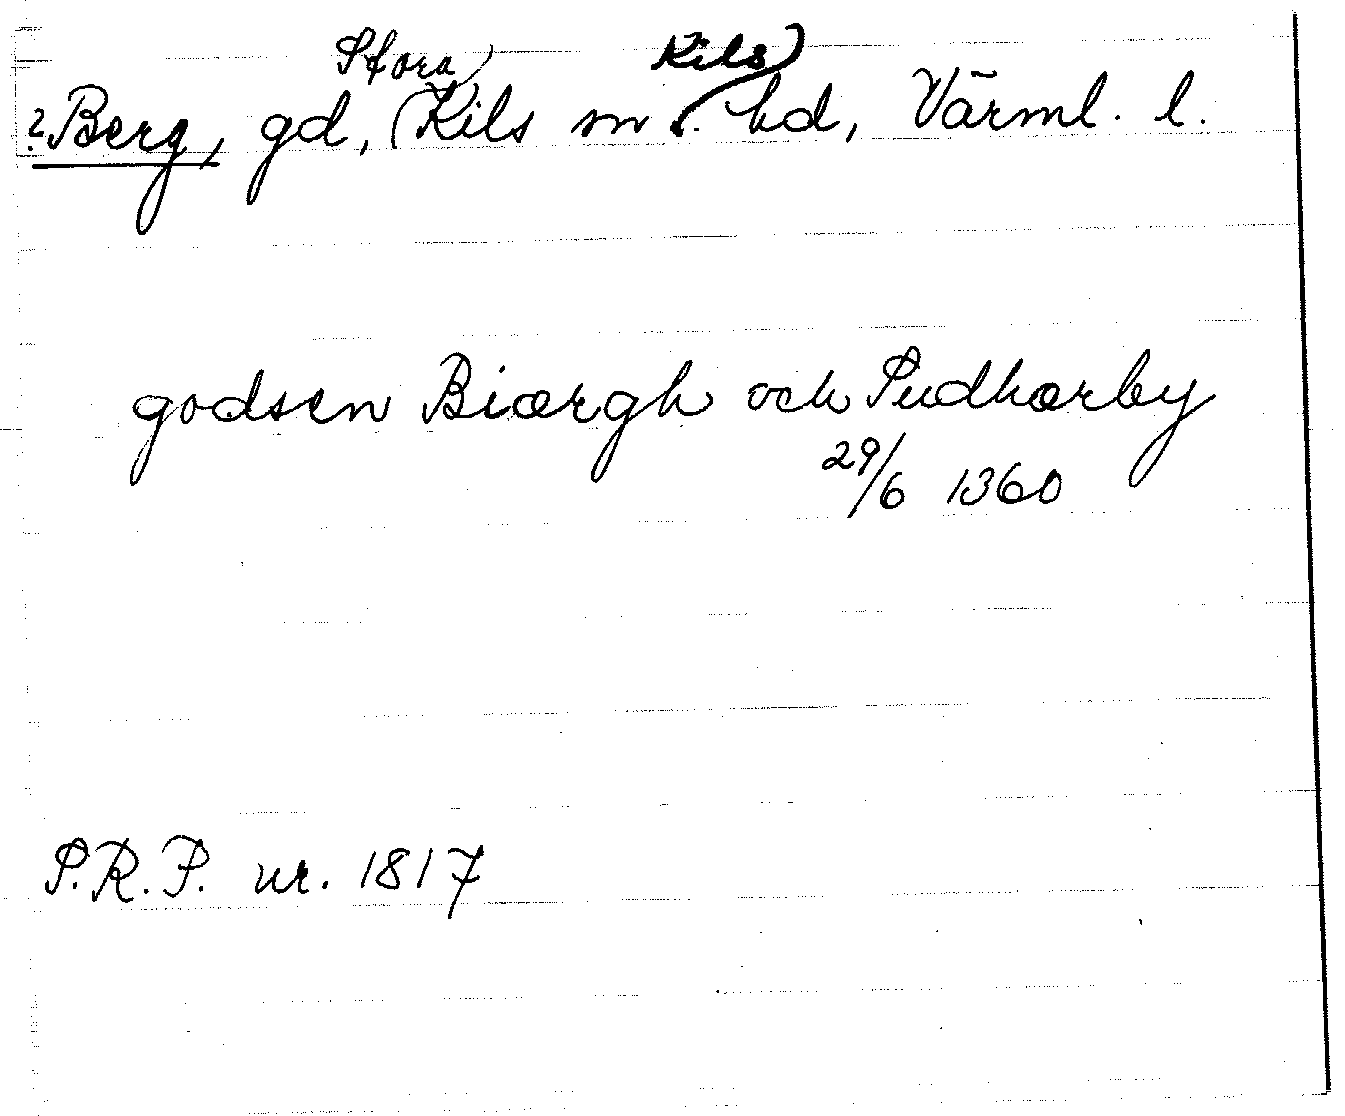 Stora Kils
? Berg, gd, Kils sn o. hd, Värml. l.
godsen Biærgh och Sudhærby
29/6 1360
S.R.P. nr. 1817